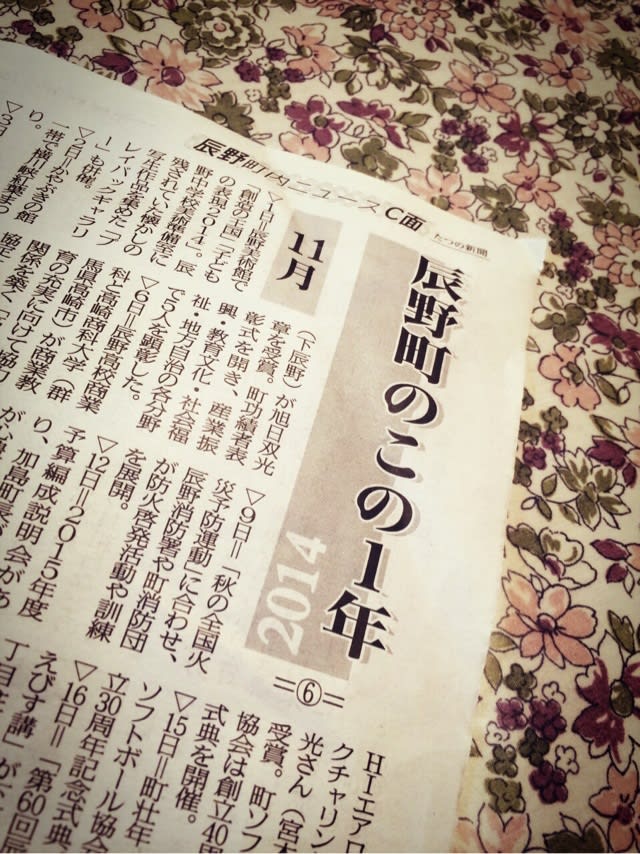 辰野町内ニュースC面
たつの新聞
辰野町のこの1年
2014
=⑥=
11月
▽1日=辰野美術館で
「創造の国 子ども
の表現2014」。辰
野中学校美術準備室に
残されていた懐かしの
写生作品を集めた「プ
レイバックギャラリ
ー」も併催。
▽2日=かやぶきの館
一帯で横川峡紅葉まつ
り。
▽3日
(下辰野)が旭日双光
章を受賞。町功績者表
彰式を開き、産業振
興・教育文化・社会福
祉・地方自治の各分野
で5人を顕彰した。
▽6日=辰野高校商業
科と高崎商科大学(群
馬県高崎市)が商業教
育の充実に向けて協力
関係を築く「
協定
▽9日=「秋の全国火
災予防運動」に合わせ、
辰野消防署や町消防団
が防火啓発活動や訓練
を展開。
▽12日=2015年度
予算編成説明会があ
り、加島町長が
HIエアロ
クチャリン
光さん(宮木
受賞。町ソフ
協会は創立40周
式典を開催。
▽15日=町壮年
ソフトボール協会
立30周年記念式典
▽16日=「第60回辰
えびす講」が
丁目